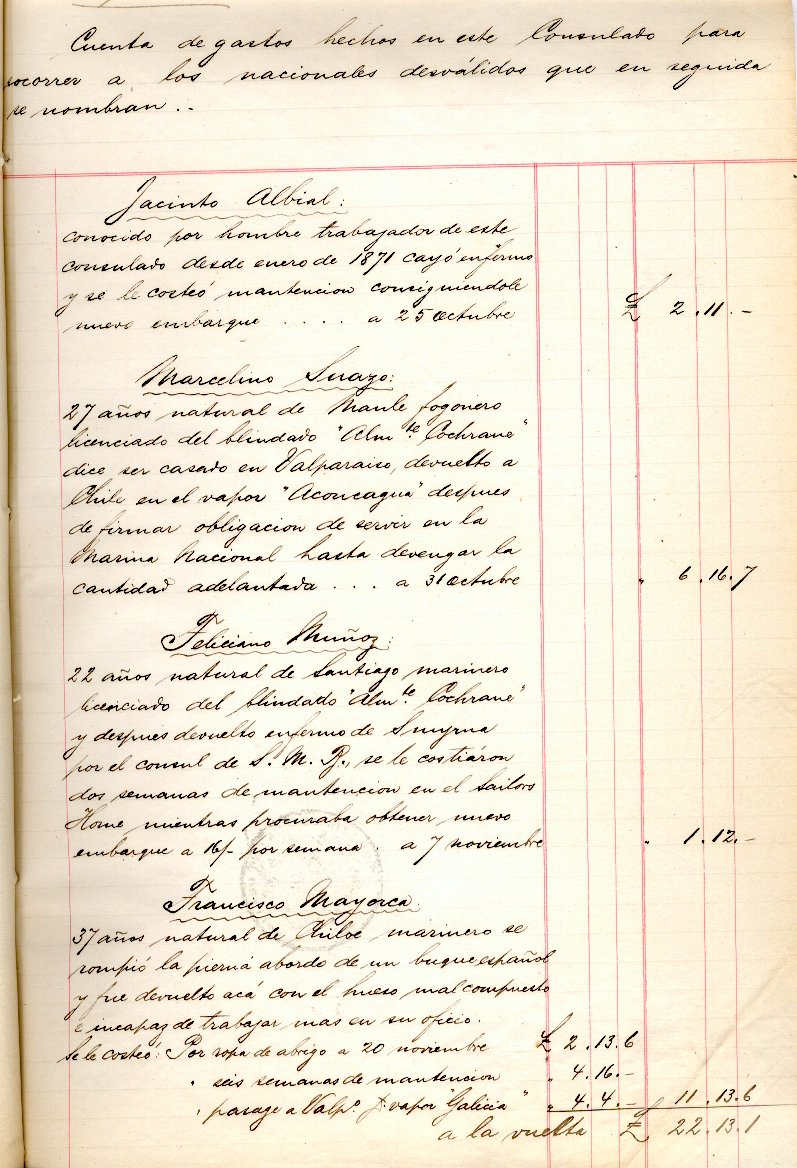 Cuenta de gastos hechos en este Consulado para
socorrer a los nacionales desválidos que en seguida
se nombran..
Jacinto Albial:
conocido por hombre trabajador de este
consulado desde enero de 1871 cayó enfermo
y se le costeó mantencion consiguiéndole
nuevo embarque . . . . a 25 Octubre £ 2.11.–
Marcelino Suazo:
27 años natural de Maule fogonero
licenciado del blindado "Almte. Cochrane"
dice ser casado en Valparaiso, devuelto a
Chile en el vapor "Aconcagua" despues
de firmar obligacion de servir en la
Marina Nacional hasta devengar la
cantidad adelantada . . . a 31 Octubre " 6.16.7
Feliciano Muñoz:
22 años natural de Santiago marinero
licenciado del blindado "Almte. Cochrane"
y despues devuelto enfermo de Smyrna
por el consul de S. M. B., se le costiáron
dos semanas de mantencion en el Sailors
Home mientras procuraba obtener nuevo
embarque a 16/- por semana . a 7 noviembre " 1.12.–
Francisco Mayorca:
37 años natural de Chiloe marinero se
rompió la pierna abordo de un buque español
y fue devuelto acá con el hueso mal compuesto
é incapaz de trabajar mas en su oficio.
Se le costeó: Por ropa de abrigo a 20 noviembre £ 2.13.6
" seis semanas de mantencion " 4.16.–
" pasage a Valpo. pr. vapor "Galicia" " 4.4.– " 11.13.6
a la vuelta £ 22.13.1